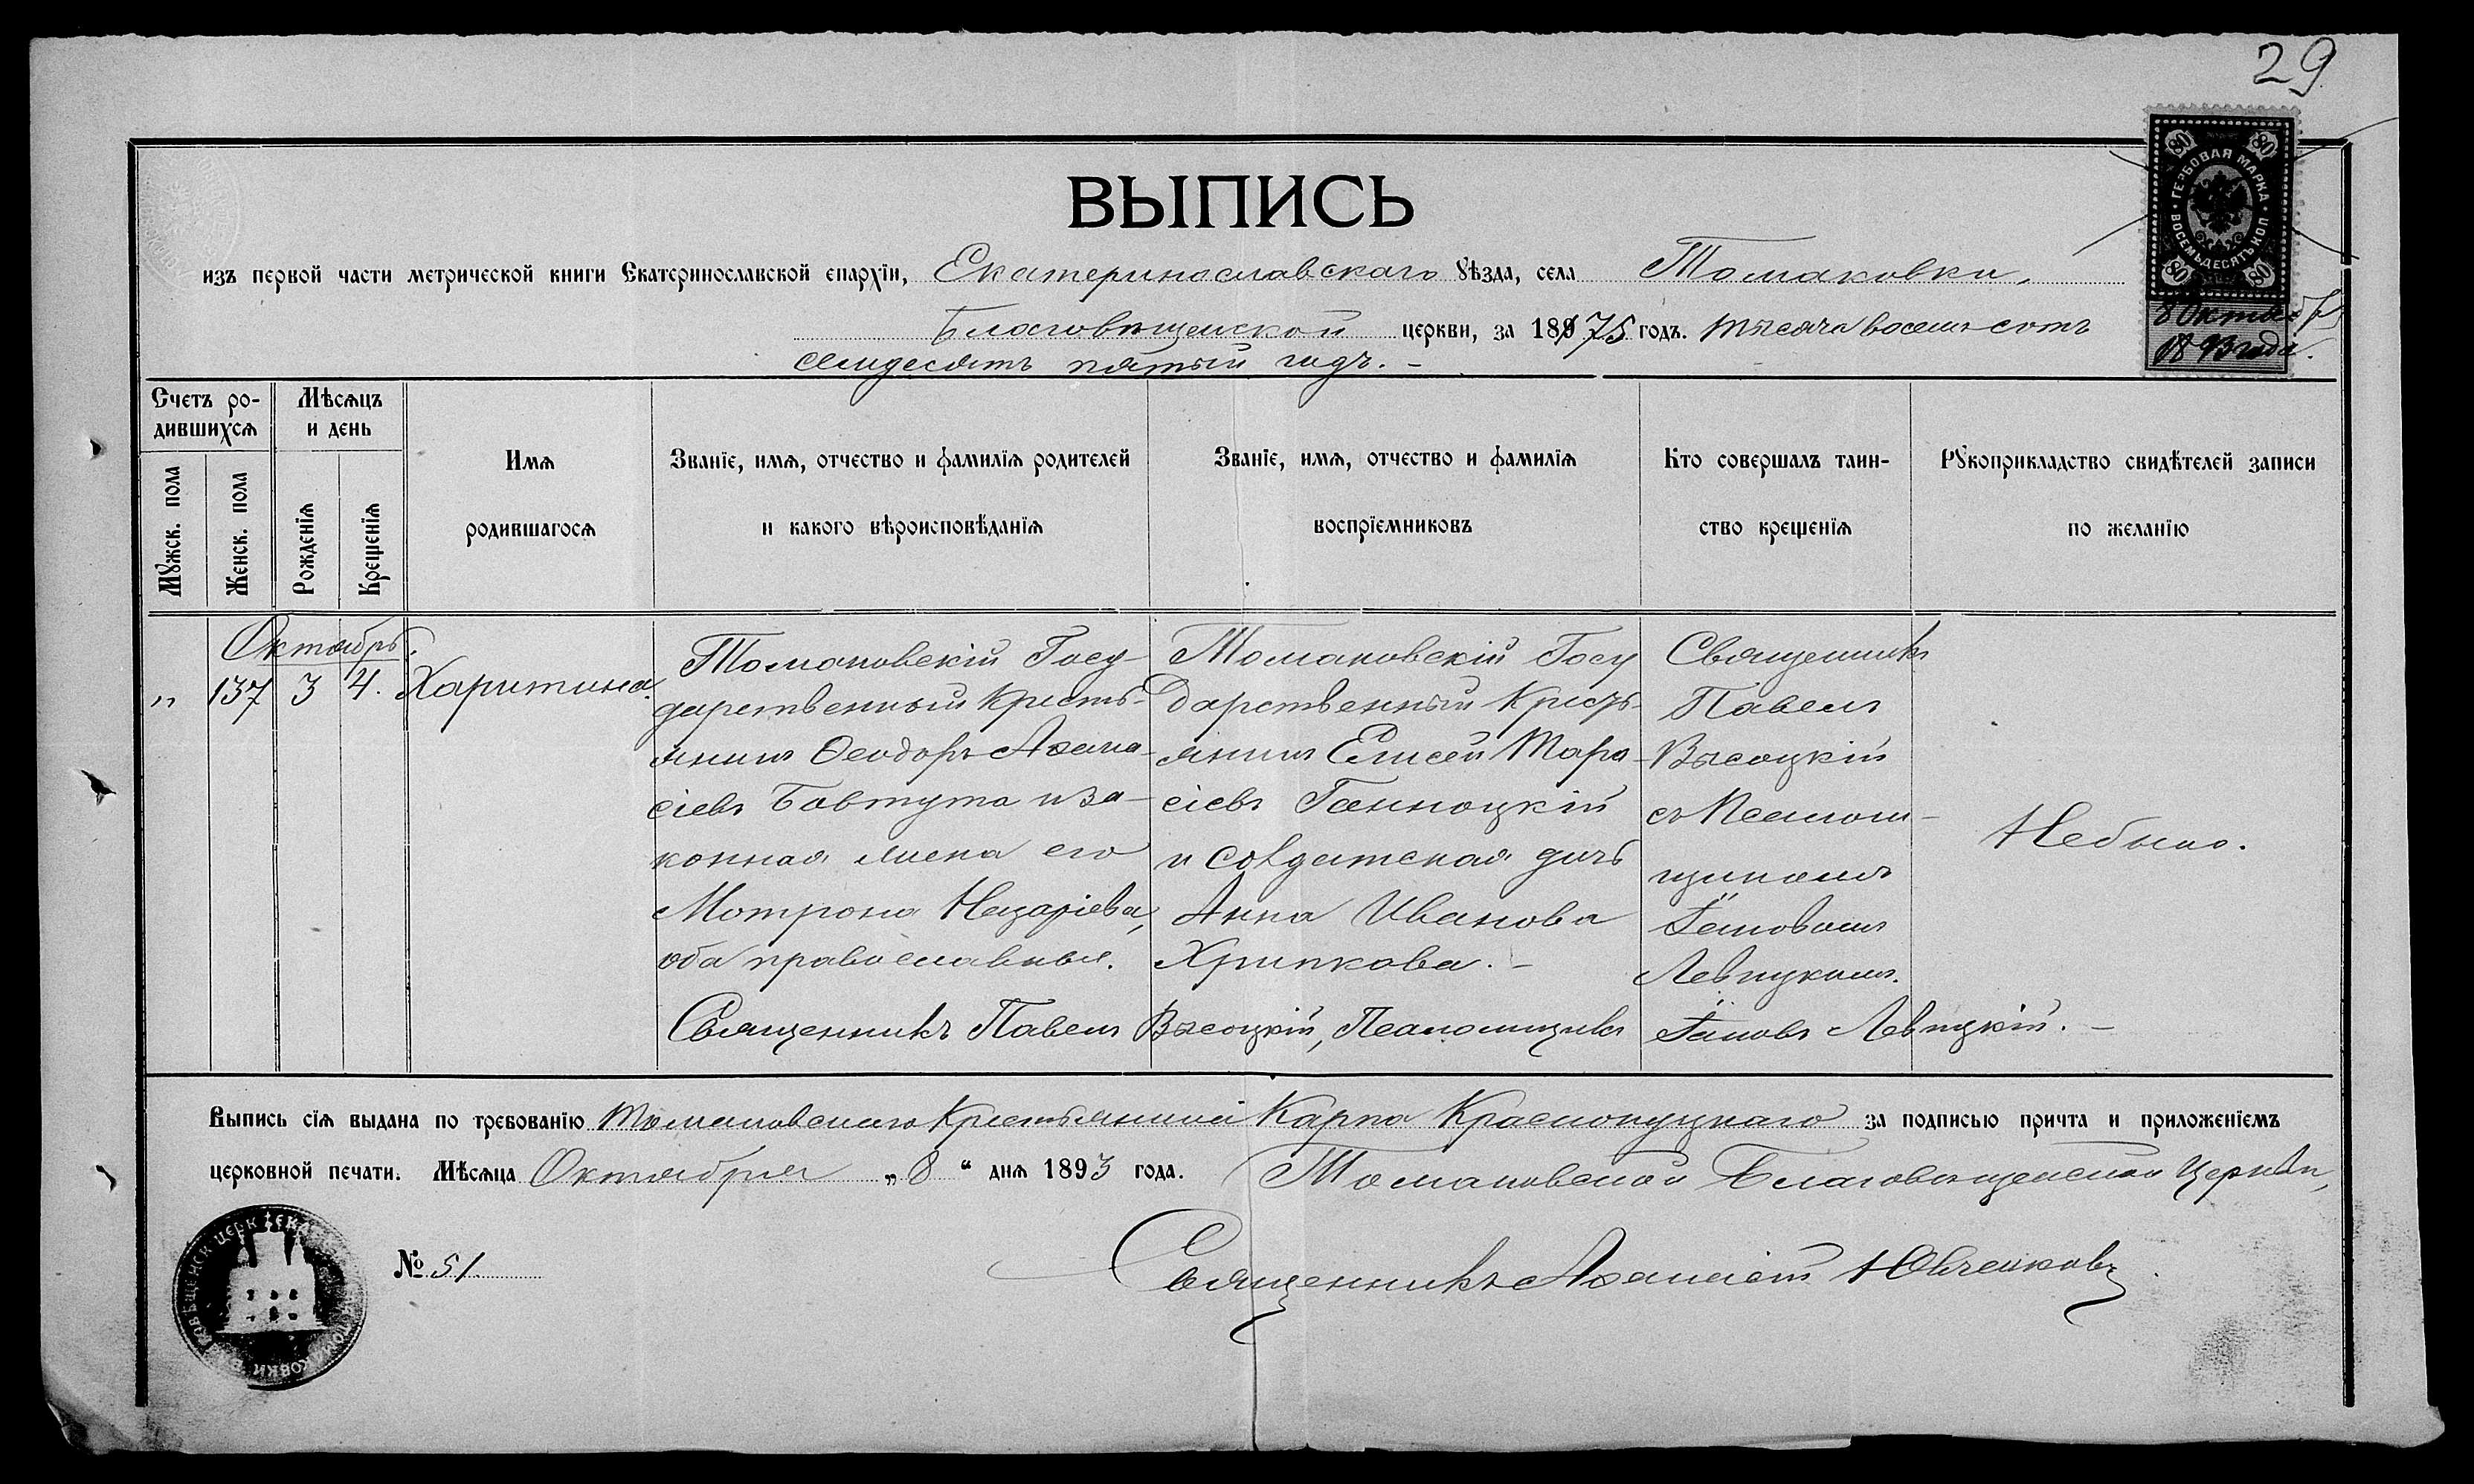 29
ВЫПИСЬ
изъ первой части метрической книги Екатеринославской епархіи, Екатеринославскаго Уѣзда, села Томаковки,
Благовѣщенской церкви, за 1875 годъ. тысяча восемь сотъ
семидесятъ пятый годъ. –
ГЕРБОВАЯ МАРКА
ВОСЕМЬДЕСЯТЪ КОП.
80 80 80 80
8 Октября
1893 года.
Счетъ ро-
дившихся
Мѣсяцъ
и день
Мужск. пола
Женск. пола
Рожденія
Крещенія
Имя
родившагося
Званіе, имя, отчество и фамилія родителей
и какого вѣроисповѣданія
Званіе, имя, отчество и фамилія
воспріемниковъ
Кто совершалъ таин-
ство крещенія
Рукоприкладство свидѣтелей записи
по желанію
Октябрь.
„ 137 3 4. Харитина.
Томаковскій Госу-
дарственный Кресть-
янинъ Ѳеодоръ Аѳана-
сіевъ Бовтута и за-
конная жена его
Мотрона Назаріева,
оба православные.
Томаковскій Госу
дарственный Кресть-
янинъ Елисей Тара-
сіевъ
и солдатская дочь
Анна Иванова
Хрипкова. –
Священникъ
Павелъ
Высоцкій
съ Псаломщ-
щикомъ
Іаковомъ
Левицкимъ.
Небыло.
Священникъ Павелъ Высоцкій, Псаломщикъ Іаковъ Левицкій. –
Выпись сія выдана по требованію Томаковскаго Крестьянина Карпа Краснокуцкаго за подписью причта и приложеніемъ
церковной печати. Мѣсяца Октября „ 8 “ дня 1893 года. Томаковской Благовѣщенской Церкви,
№ 51
Священникъ Аѳанасій Ювченковъ